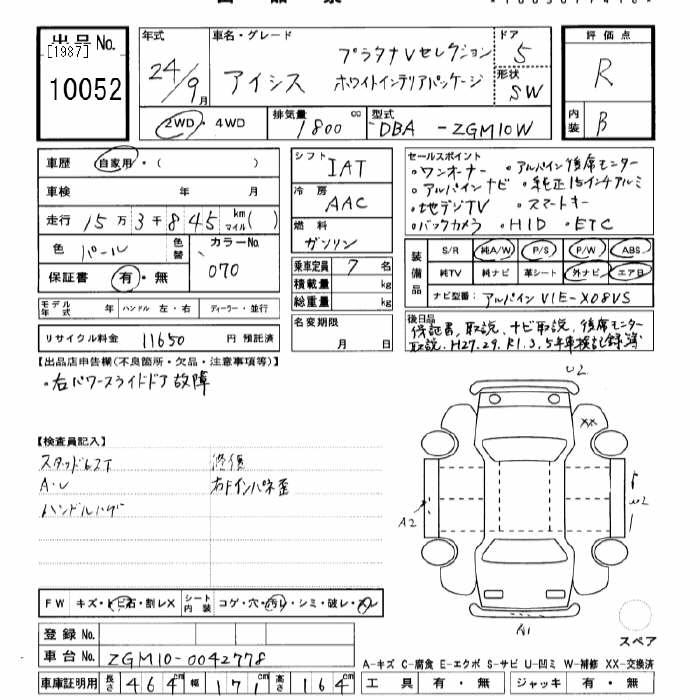 出品No.
[1987]
10052
年式
24/9月
車名・グレード
プラタナVセレクション
アイシス ホワイトインテリアパッケージ
ドア
5
形状
SW
評価点
R
内装
B
2WD・4WD
排気量 1800 cc
型式 DBA-ZGM10W
車歴 自家用・( )
車検 年 月
走行 15万3千845 km マイル( )
色 パール 色替 カラーNo. 070
保証書 有・無
モデル年式 年 ハンドル 左・右 ディーラー・並行
リサイクル料金 11650 円 預託済
シフト IAT
冷房 AAC
燃料 ガソリン
乗車定員 7 名
積載量 kg
総重量 kg
名変期限
月 日
セールスポイント
・ワンオーナー ・アルパイン後席モニター
・アルパインナビ ・純正15インチアルミ
・地デジTV ・スマートキー
・バックカメラ ・HID ・ETC
装備品
S/R 純A/W P/S P/W ABS
純TV 純ナビ 革シート 外ナビ エア日
ナビ型番: アルパインVIE-X08VS
後日品
保証書、取説、ナビ取説、後席モニター
取説、H27.29、R1.3.5年車検記録簿
【出品店申告欄(不良箇所・欠品・注意事項等)】
・右パワースライドドア故障
【検査員記入】
修復
A・U 右Fインパネ歪
ハンドルハゲ
U2
XX
A2
U2
A1
スペア
FW キズ・トビ石・割レX シート内装 コゲ・穴・汚レ・シミ・破レ・スレ
登録No.
車台No. ZGM10-0042778
車庫証明用 長さ 464cm 幅 171cm 高さ 164cm
A-キズ C-腐食 E-エクボ S-サビ U-凹ミ W-補修 XX-交換済
工具 有・無 ジャッキ 有・無